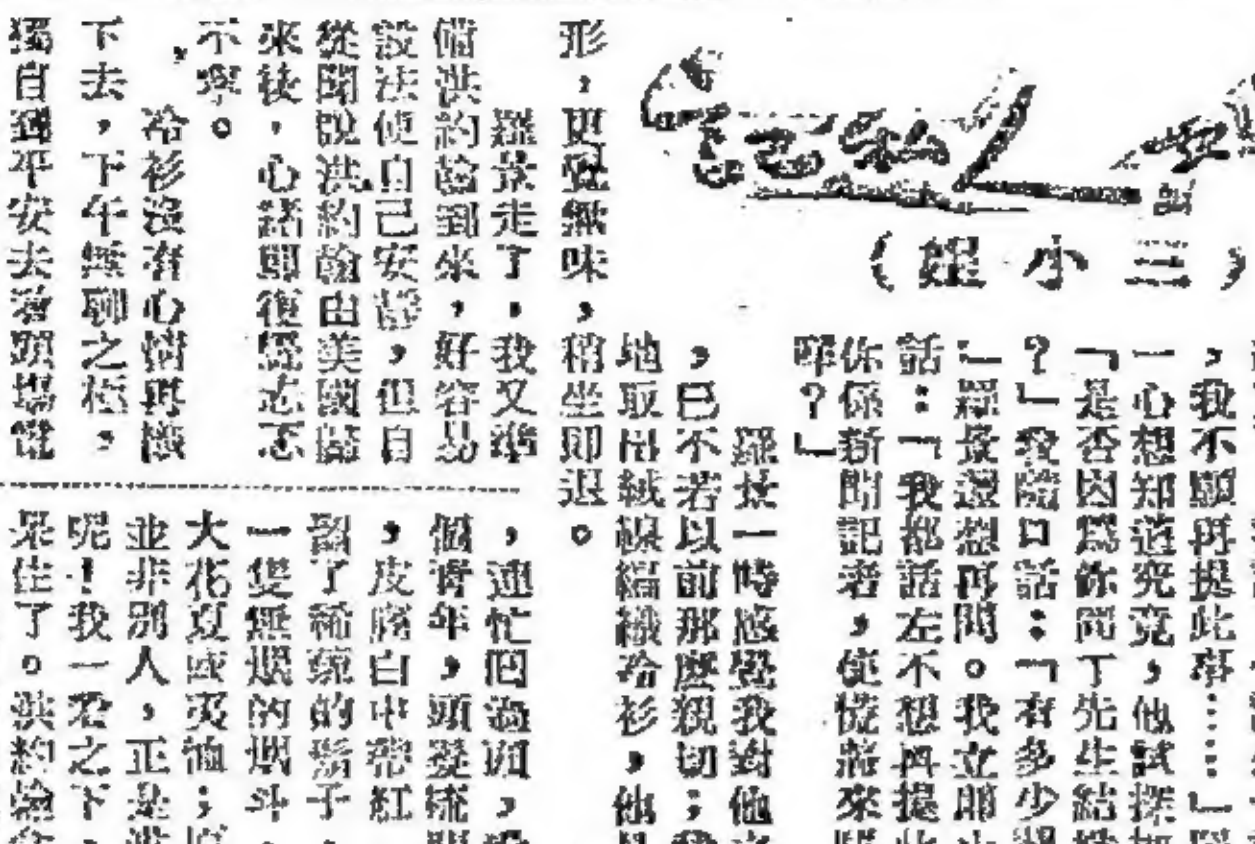 私記
(三小姐)
,我不願再提此事……」
一心想知道究竟,他試探
「是否因為你同丁先生結
?」我隨口話:「有多少
」羅景還想再問。我立即
話:「我都話左不想再提
你係新聞記者,使慌將來
咩?」
羅景一時感覺我對他
,已不若以前那麼親切;我
地取出絨線編織冷衫,他
形,更覺無味,稍坐即退。
羅景走了,我又準
備洪約翰到來,好容易
設法使自己安靜,但自
從聞說洪約翰由美國歸
來後,心緒即復忐忑
不寧。
冷衫沒有心情再織
下去,下午無聊之極,
獨自到平安去看頭場電
,連忙回過頭,
個青年,頭髮梳
,皮膚白中帶紅
留了稀疏的鬍子
一隻無煙的烟斗
大花夏威夷恤;
並非別人,正是
呢!我一看之下,
呆住了。洪約翰